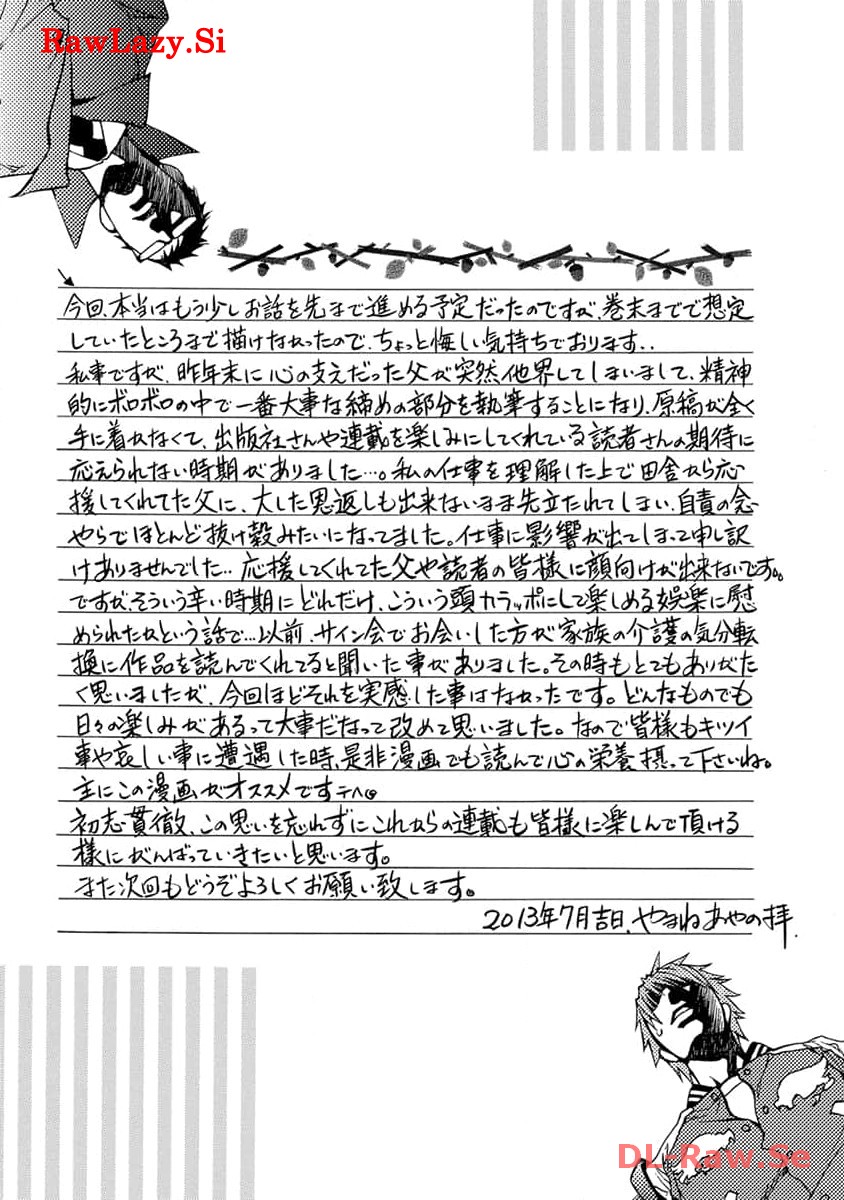 RawLazy.Si
今回、本当はもう少しお話を先まで進める予定だったのですが、巻末までで想定
していたところまで描けなかったので、ちょっと悔しい気持ちでおります..
私事ですが、昨年末に心の支えだった父が突然他界してしまいまして、精神
的にボロボロの中で一番大事な締めの部分を執筆することになり、原稿が全く
手に着かなくて、出版社さんや連載を楽しみにしてくれている読者さんの期待に
応えられない時期がありました…。私の仕事を理解した上で田舎から応
援してくれてた父に、大した恩返しも出来ないまま先立たれてしまい、自責の念
やらでほとんど抜け殻みたいになってました。仕事に影響が出てしまって申し訳
けありませんでした… 応援してくれてた父や読者の皆様に顔向けが出来ないです。
ですが、そういう辛い時期にどれだけ、こういう頭カラッポにして楽しめる娯楽に慰
められたかという話で…以前、サイン会でお会いした方が家族の介護の気分転
換に作品を読んでくれてると聞いた事がありました。その時もとてもありがた
く思いましたが、今回ほどそれを実感した事はなかったです。どんなものでも
日々の楽しみがあるって大事だなって改めて思いました。なので皆様もキツイ
事や哀しい事に遭遇した時、是非漫画でも読んで心の栄養摂って下さいね。
主にこの漫画がオススメです
初志貫徹、この思いを忘れずにこれからの連載も皆様に楽しんで頂ける
様にがんばっていきたいと思います。
また次回もどうぞよろしくお願い致します。
2013年7月吉日、やまねあやの拝
DL-Raw.Se